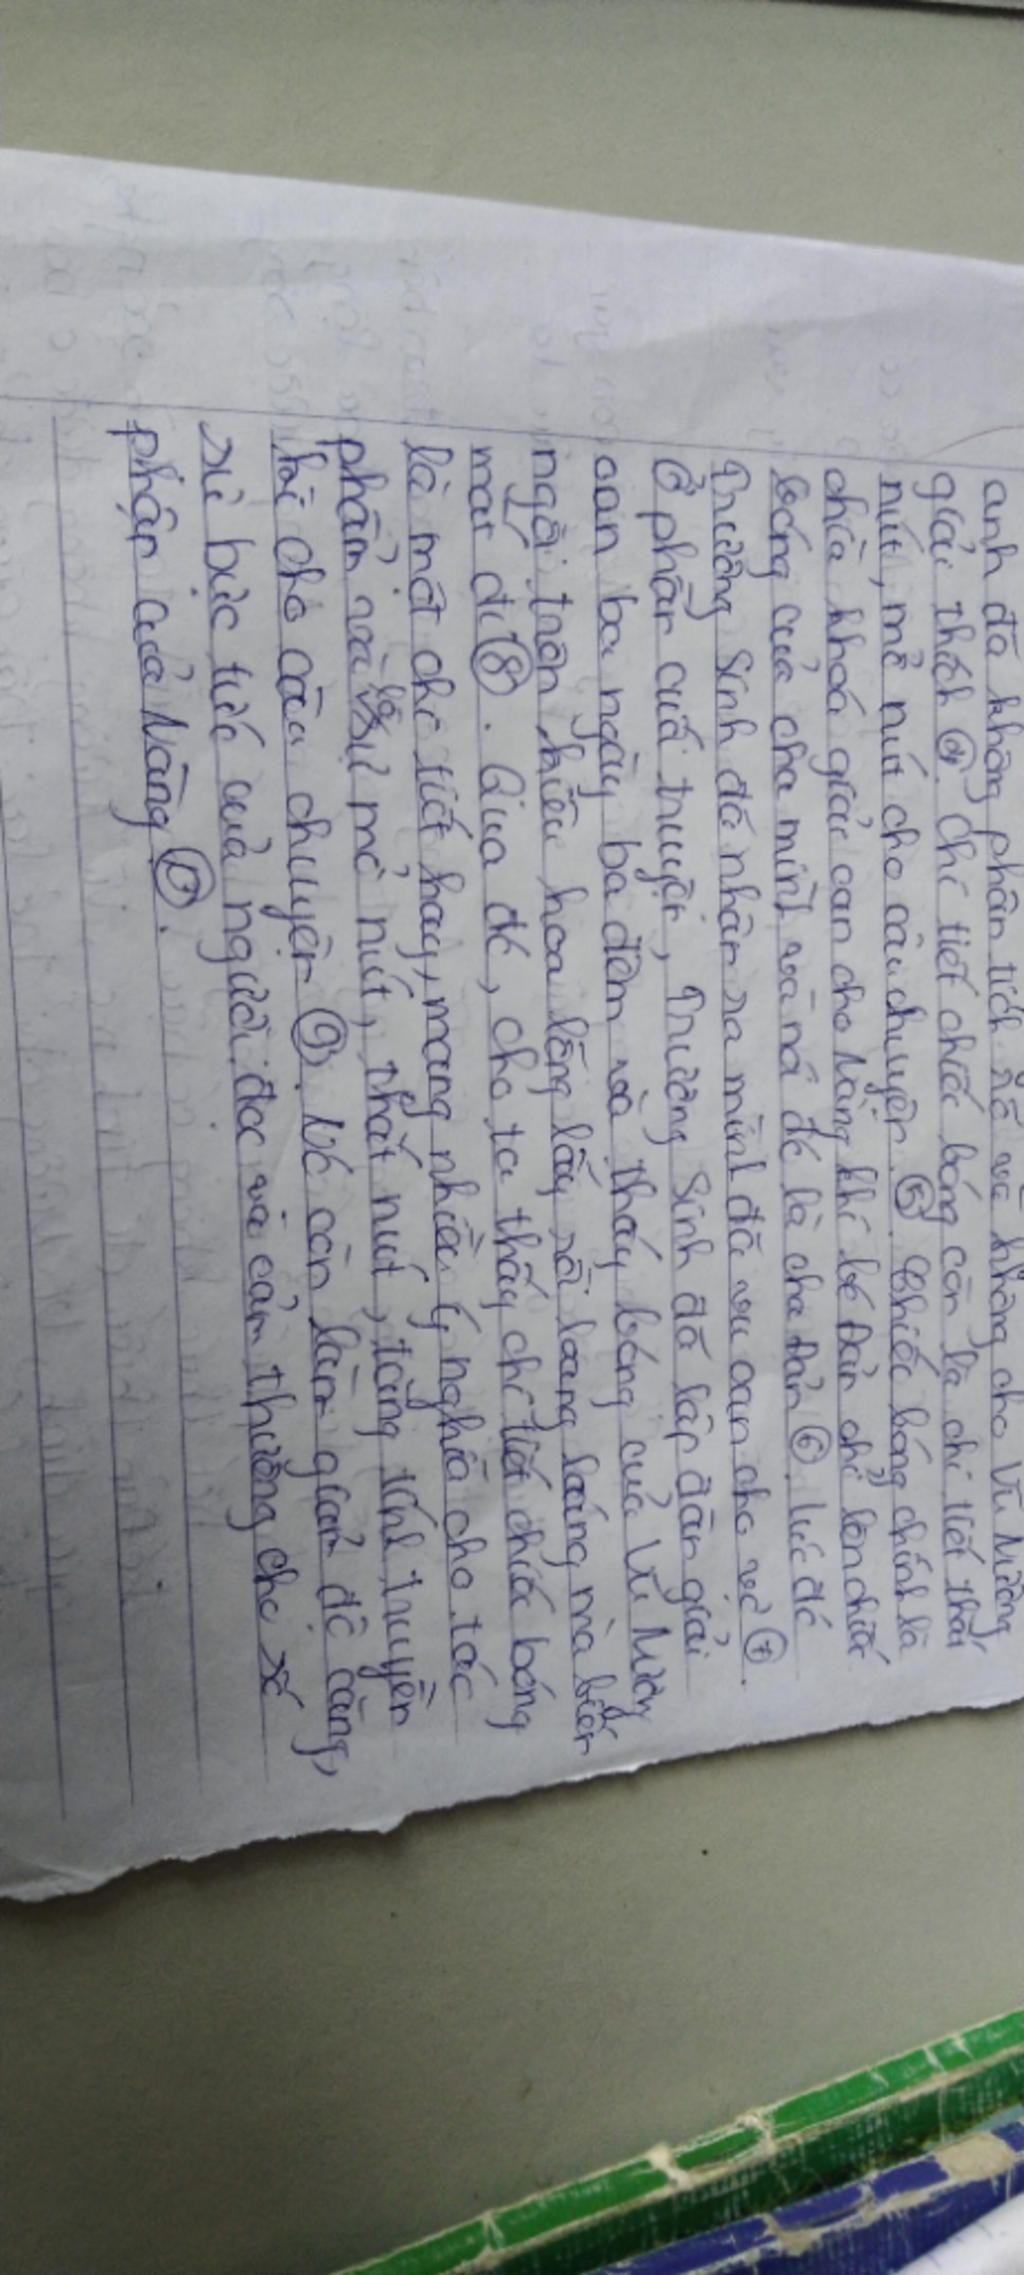 anh đã không phân tích rõ và không cho Vũ Nương
giải thích ④. Chi tiết chiếc bóng còn là chi tiết thắt
nút, mở nút cho câu chuyện ⑤. Chiếc bóng chính là
chìa khoá giải oan cho Nàng khi bé Đản chỉ lên chiếc
bóng của cha mình và nói đó là cha Đản ⑥. Lúc đó
Trương Sinh đã nhận ra mình đã vu oan cho vợ ⑦.
Ở phần cuối truyện, Trương Sinh đã lập đàn giải
oan ba ngày ba đêm và thấy bóng của Vũ Nương
ngồi trên kiệu hoa lộng lẫy rồi loang loáng mà biến
mất đi ⑧. Qua đó, cho ta thấy chi tiết chiếc bóng
là một chi tiết hay, mang nhiều ý nghĩa cho tác
phẩm và là sự mở nút, thắt nút, tăng tính truyền
kì cho câu chuyện ⑨. Nó còn làm giảm độ căng,
sự bực tức của người đọc và cảm thương cho số
phận của Nàng ⑩.